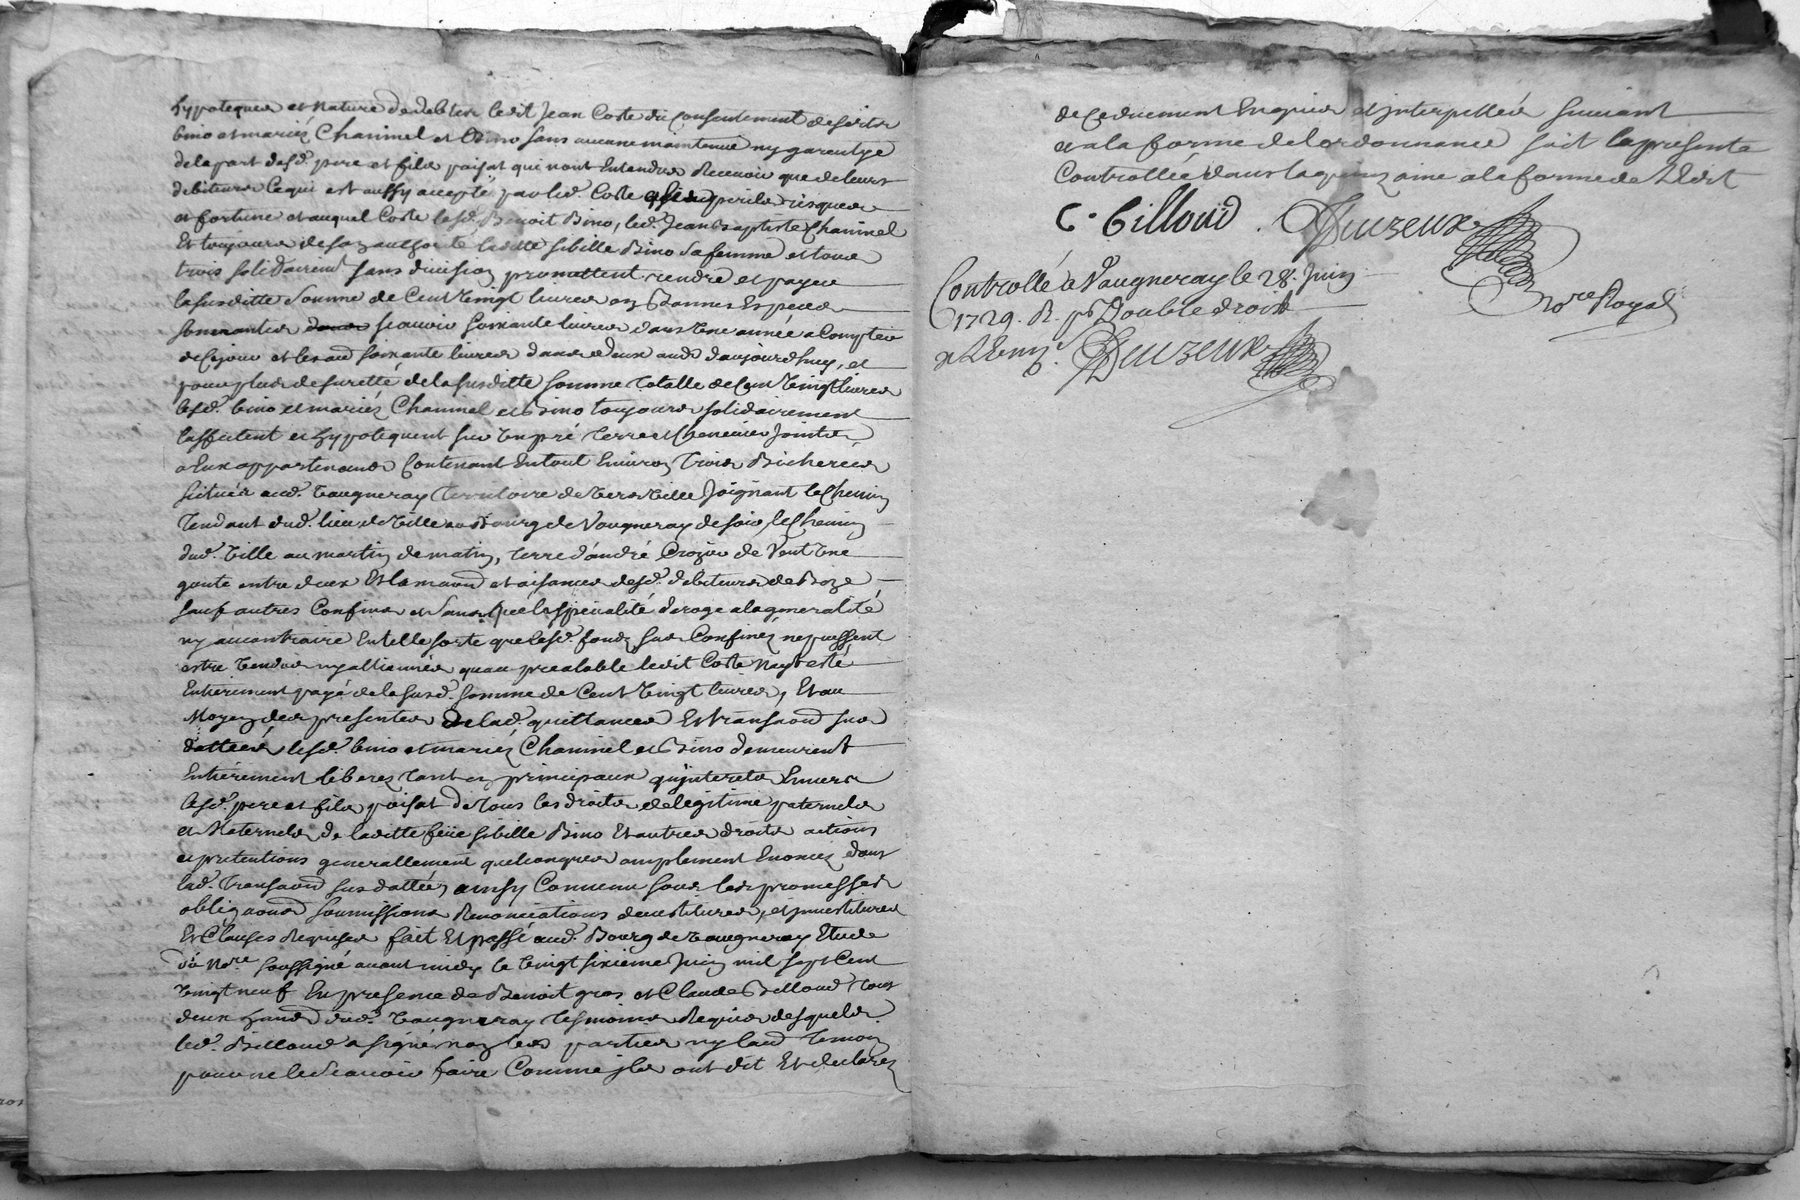 hypoteques et nature de debtes ledit Jean Coste du consentement desdits
bino et mariéz Chaninel et Bino sans aucune maintenue ny garentye
de la part desd. pere et fils paisat qui nont entendus Recevoir que de leurs
debiteurs Ce qui est aussy accepté par led. Coste a ses perils risques
et fortune et auquel Coste lesd. Benoit Bino, led. Jean Baptiste Chaninel
Et toujours de son authorité laditte sibille Bino sa femme et tous
trois solidairemt. sans division promettent rendre et payer
la susditte Somme de Cent Vingt livres en Bonnes Especes
sonnantes scavoir soixante livres dans Une année a Compter
de Ce jour et les aud soixante livres dans deux ans d'aujourdhuy, et
pour plus de suretté de la susditte somme totalle de Cent Vingt livres
lesd. bino et mariéz Chaninel et Bino toujours solidairement
affectent et hypotequent sur Un pré terre et Chenevier Joints
a Eux appartenants Contenant En tout Environ Trois Bicherées
situés aud. Vaugneray Territoire de Vers Ville Joignant le Chemin
Tendant dud. lieu de Ville au Bourg de Vaugneray de soir, le Chemin
dud. Ville au martin de matin, terre d'andré Crozier de Vent Une
goute entre deux Et la maison et aisances desd. debiteurs de Bize
sauf autres Confins et sans que la spécialité déroge a la generalité
ny au contraire En telle sorte que lesd. fonds sus Confinéz ne puissent
estre Vendus ny alliennés quau prealable ledit Coste nayt esté
Entierement payé de la susd. somme de Cent Vingt livres, Et au
Moyen des presentes de lad. quittance Et transaon sus
dattées lesd. bino et mariéz Chaninel et Bino demeurent
Entièrement liberez tant en principaux quinterets Envers
lesd. pere et fils paisat de tous les droits de legitime paternels
et Maternels de laditte feüe sibille Bino Et autres droits actions
et pretentions generallement quelconques amplement Enoncez dans
lad. Transaon sus dattée, ainsy Convenu sous les promesses
obligaons soumissions Renonciations devestitures, et investitures
Et Clauses Requises fait Et passé aud. Bourg de Vaugneray Etude
du Nore soussigné avant midy le Vingt sixieme Juin mil sept Cent
Vingt neuf En presence de Benoit gros et Claude Billoud tous
deux dud. Vaugneray Tesmoins Requis desquels
led. Billoud a signé non les parties ny laud Temoin
pour ne le scavoir faire Comme ils ont dit Et declarez
de Ce duement Enquis et interpellés suivant
et a la forme de lordonnance soit la presente
Controllée dans la quinzaine a la forme de l'Edit
C. Billoud. Deuzeux
Nre Royal
Controllé a Vaugneray le 28. Juin
1729. R. pr Double droit
Deuzeux